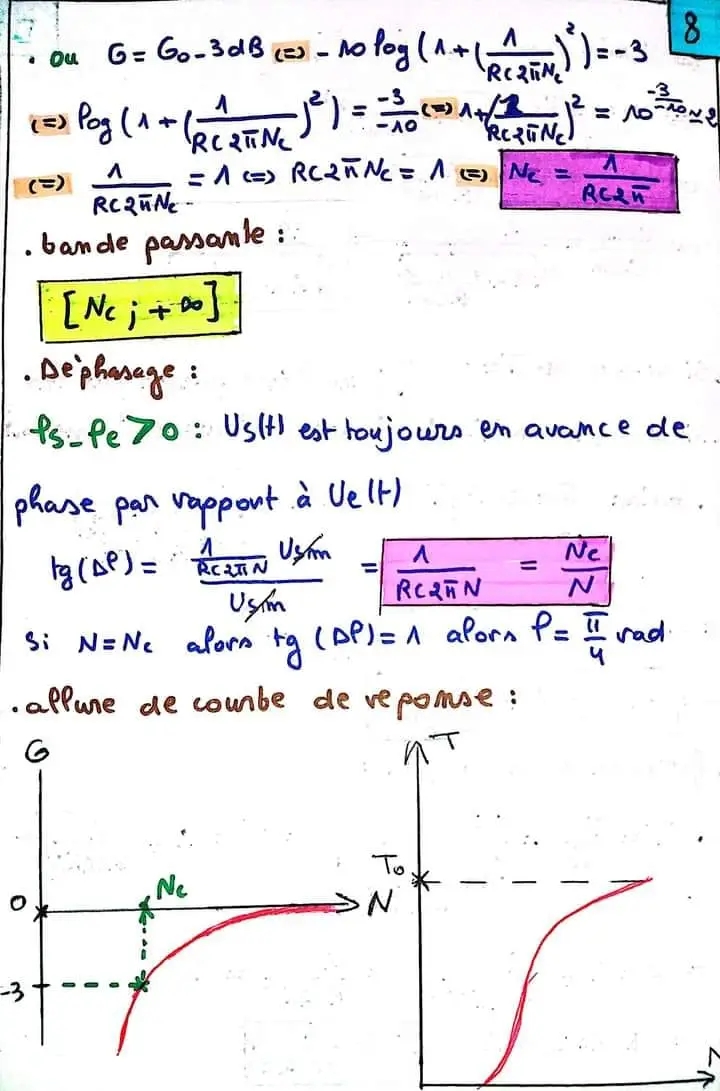 8
. ou G = G₀ - 3dB (=) - 10 log(1 + (1/(RC2πNc))²) = -3
(=) log(1 + (1/(RC2πNc))²) = -3/-10 (=) 1 + (1/(RC2πNc))² = 10^(-3/-10) ≃ 2
(=) 1/(RC2πNc) = 1 (=) RC2πNc = 1 (=) Nc = 1/(RC2π)
. bande passante :
[Nc ; +∞]
. Déphasage :
φs - φe > 0 : Us(t) est toujours en avance de
phase par rapport à Ue(t)
tg(Δφ) = (1/(RC2πN) Usm)/Usm = 1/(RC2πN) = Nc/N
Si N = Nc alors tg(Δφ) = 1 alors φ = π/4 rad
. allure de courbe de reponse :
G T
Nc T₀
0 N
-3
N